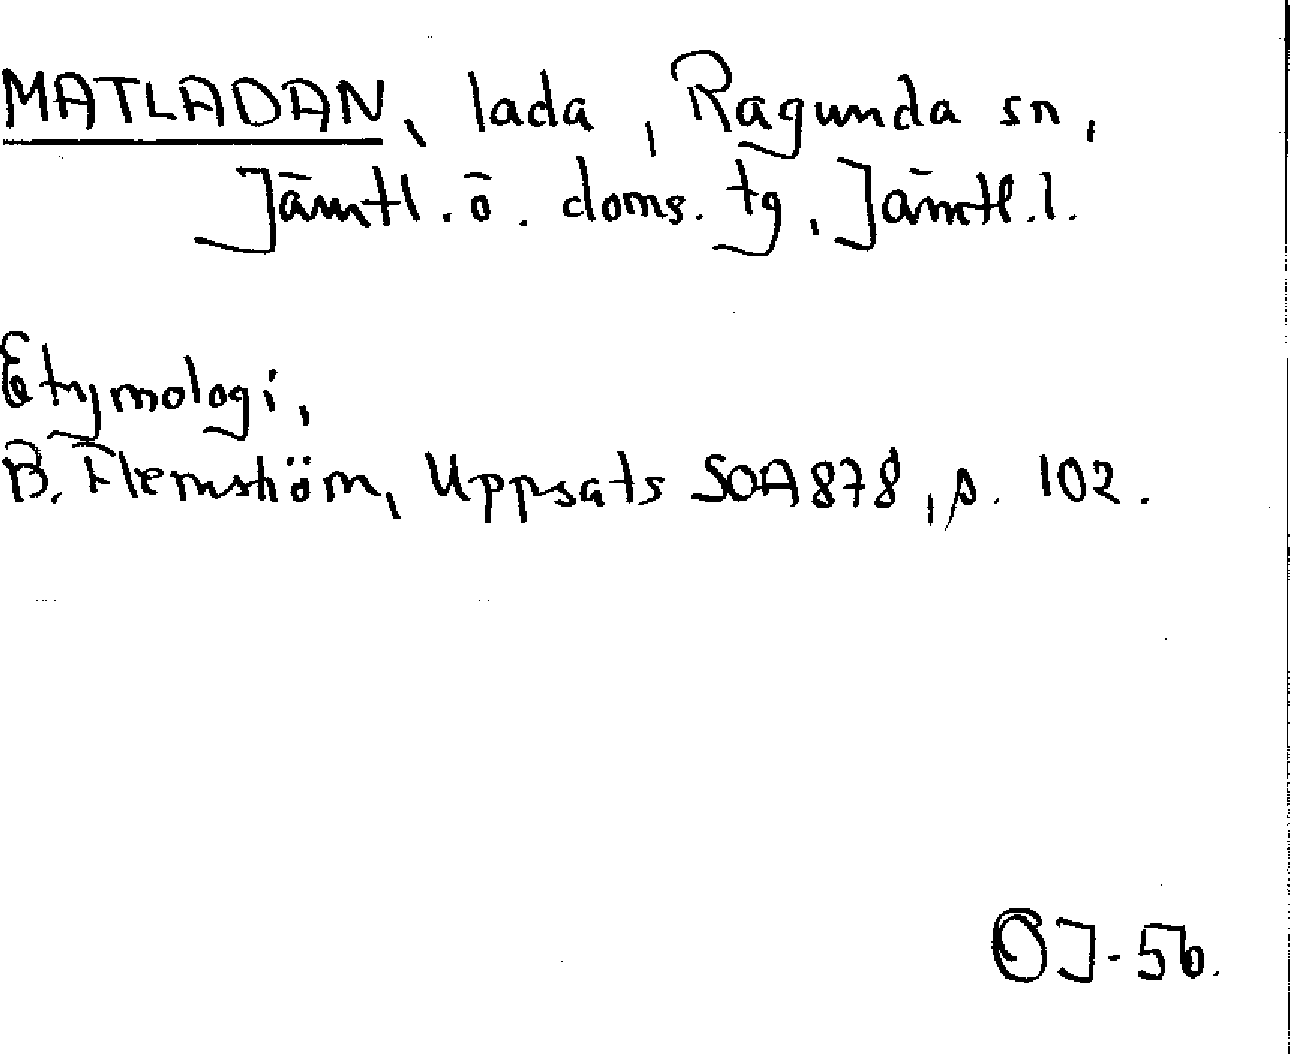 MATLADAN, lada, Ragunda sn,
Jämtl. ö. doms. tg, Jämtl. l.
Etymologi,
B. Flemström, Uppsats SOA 878, s. 102.
OJ-56.